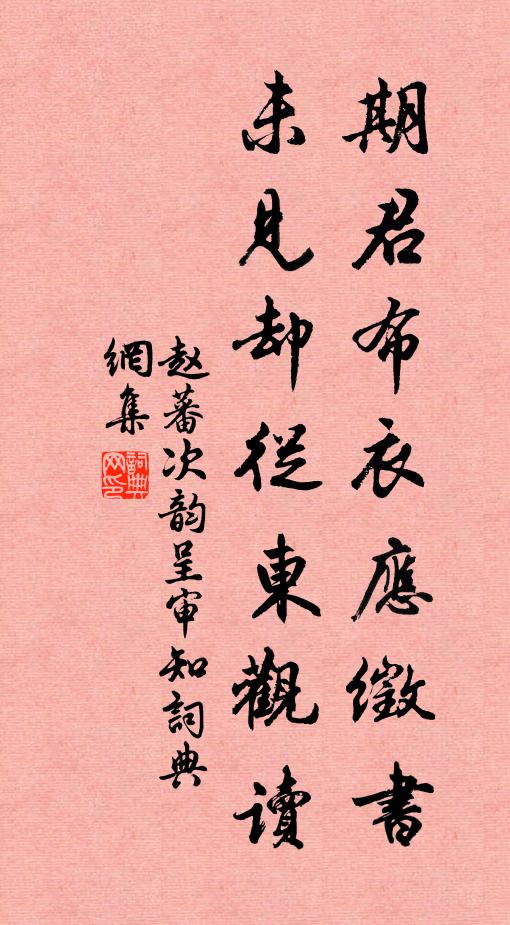 期君布衣應徵書
未見却從東觀读
赵蕃次韵呈审知詞典
網集
詞典网印